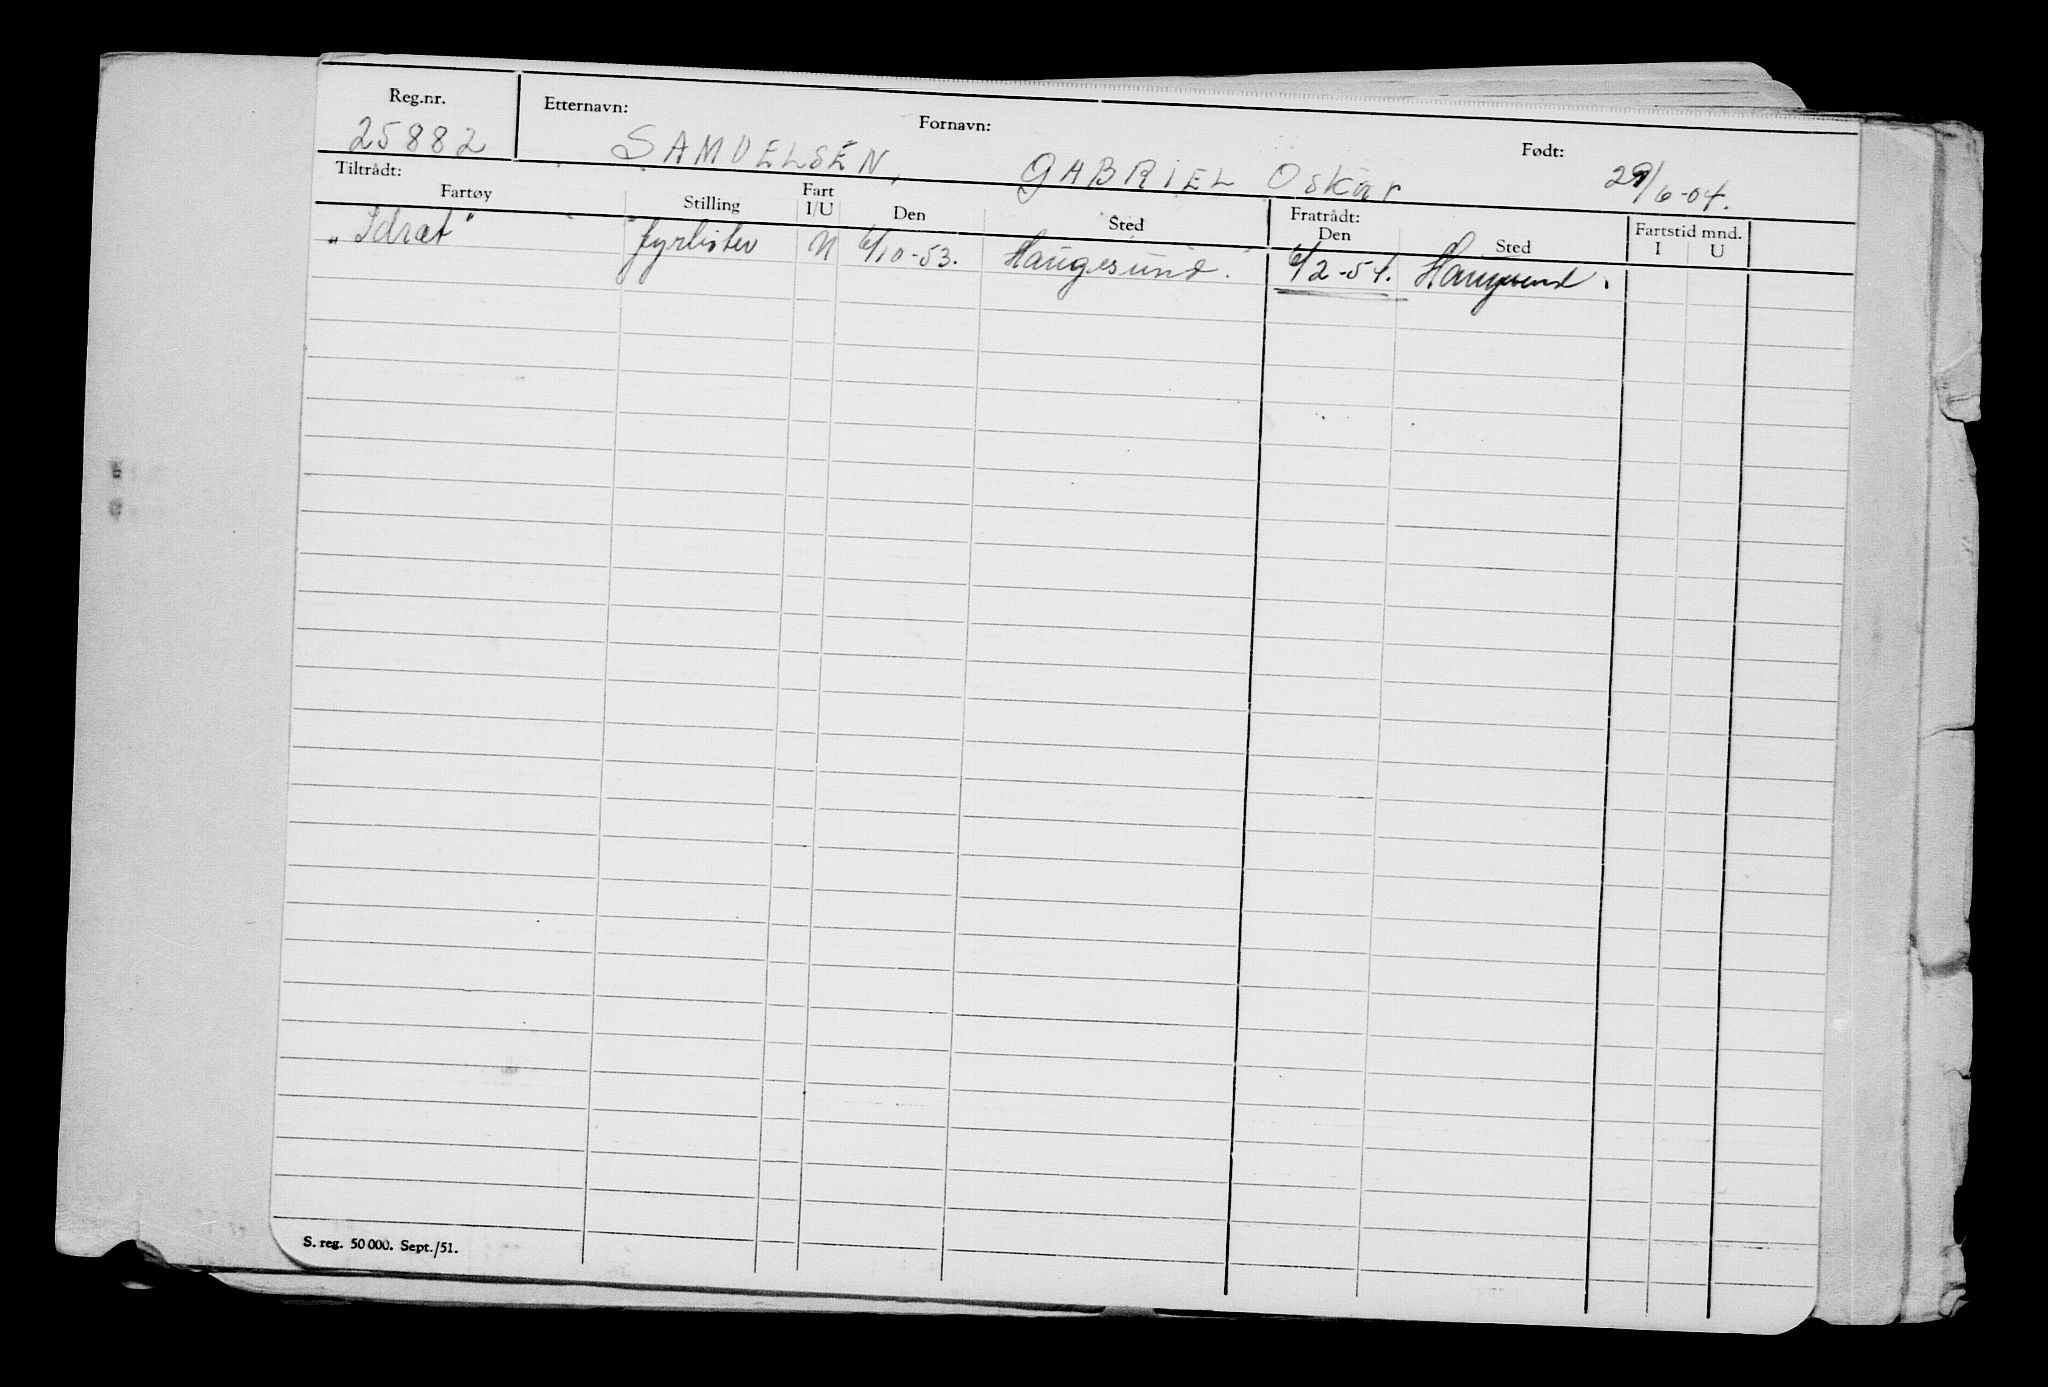 Reg.nr. Etternavn: Fornavn: Født:
25882 SAMUELSEN, GABRIEL Oskar 29/6-04.
Tiltrådt: Fratrådt:
Fartøy Stilling Fart I/U Den Sted Den Sted Fartstid mnd. I U
„Idræt" fyrbøter U 6/10-53. Haugesund. 6/2-54. Haugesund.
S. reg. 50 000. Sept./51.